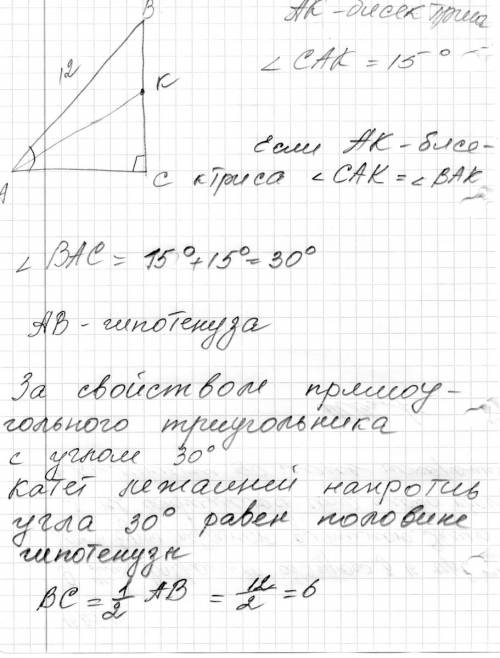 B
AK - бисектриса
12
∠ CAK = 15°
K
Если AK - бисе-
A
C
ктриса ∠ CAK = ∠ BAK
∠ BAC = 15° + 15° = 30°
AB - гипотенуза
За свойством прямоу-
гольного триугольника
с углом 30°
катет лежащией напротив
угла 30° равен половине
гипотенузи
BC = 1/2 AB = 12/2 = 6